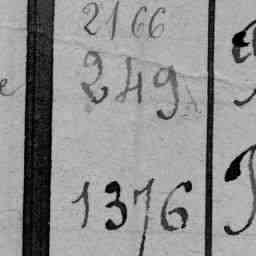 2166
249
1376